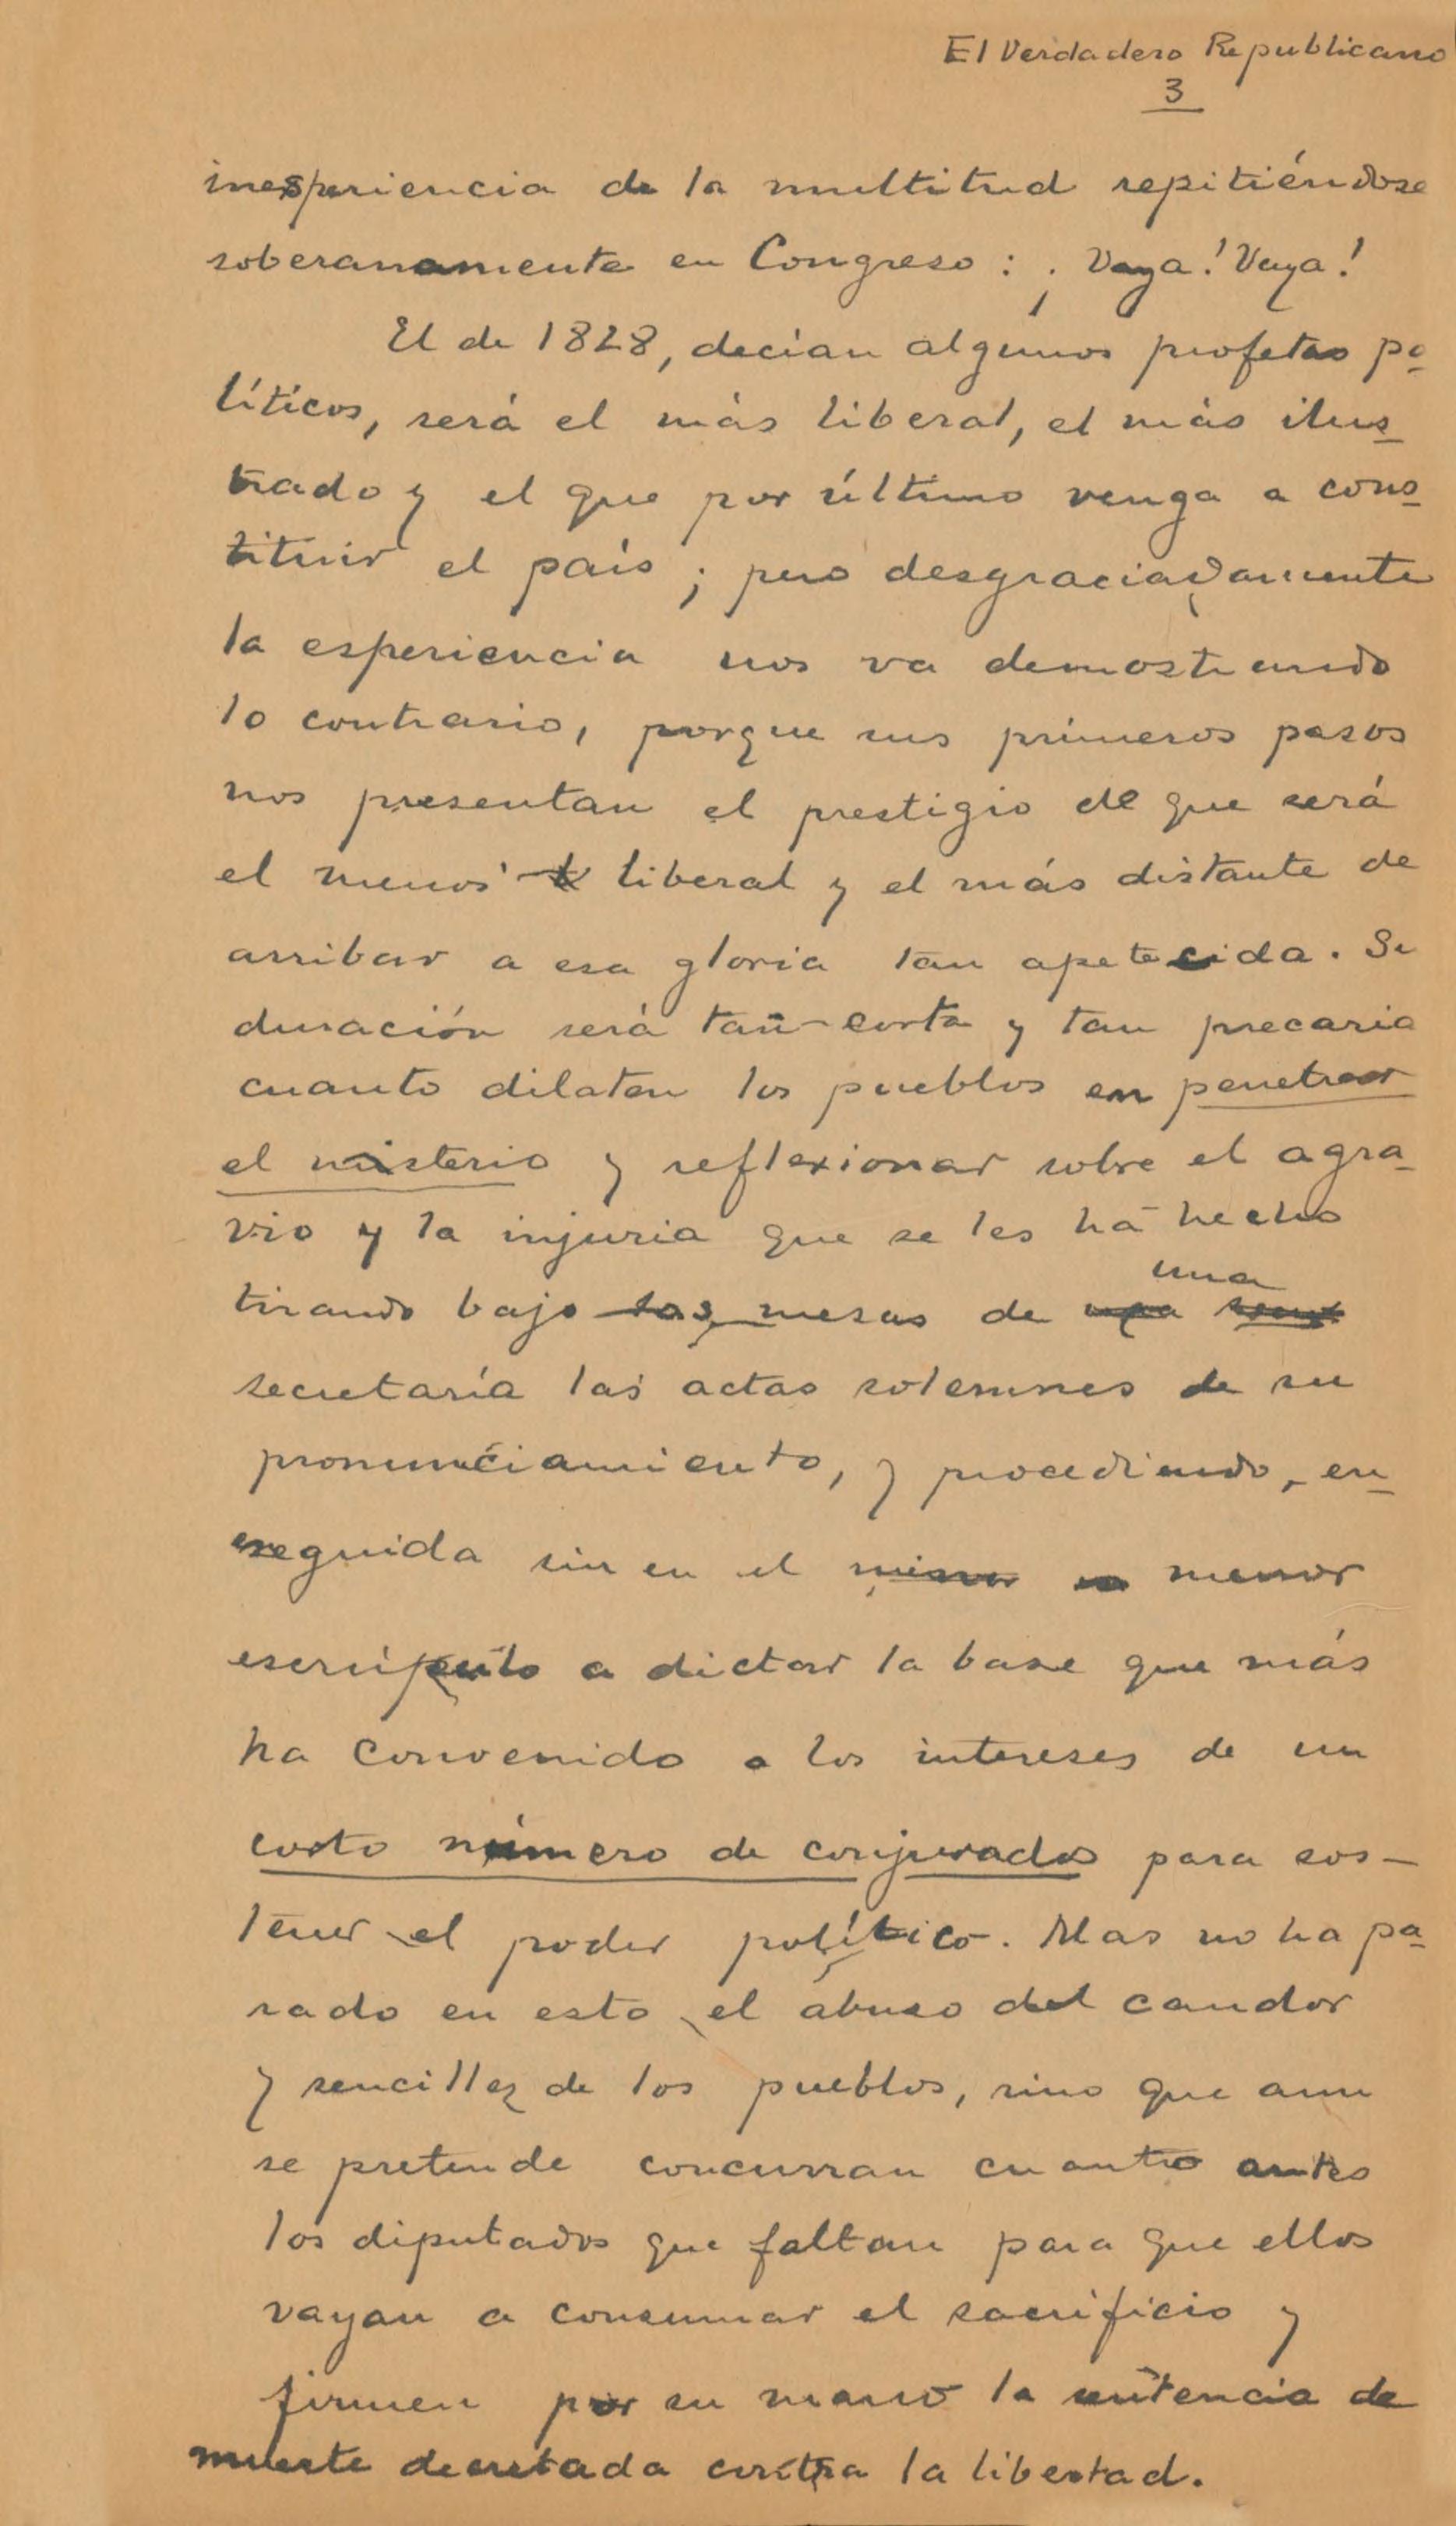 El Verdadero Republicano
3
inesperiencia de la multitud repitiéndose
soberanamente en Congreso: ¡Vaya! Vaya!
El de 1828, decían algunos profetas po
líticos, será el más liberal, el más ilus
trado y el que por último venga a cons
tituir el país; pero desgraciadamente
la esperiencia nos va demostrando
lo contrario, porque sus primeros pasos
nos presentan el prestigio de que será
el menos liberal y el más distante de
arribar a esa gloria tan apetecida. Su
duración será tan corta y tan precaria
cuanto dilaten los pueblos en penetrar
el misterio y reflexionar sobre el agra
vio y la injuria que se les ha hecho
tirando bajo las mesas de una
secretaría las actas solemnes de su
pronunciamiento, y procediendo, en
seguida sin en el menor
escrúpulo a dictar la base que más
ha convenido a los intereses de un
corto número de conjurados para sos-
tener el poder político. Mas no ha pa
rado en esto el abuso del candor
y sencillez de los pueblos, sino que aun
se pretende concurran cuanto antes
los diputados que faltan para que ellos
vayan a consumar el sacrificio y
firmen por su mano la sentencia de
muerte decretada contra la libertad.